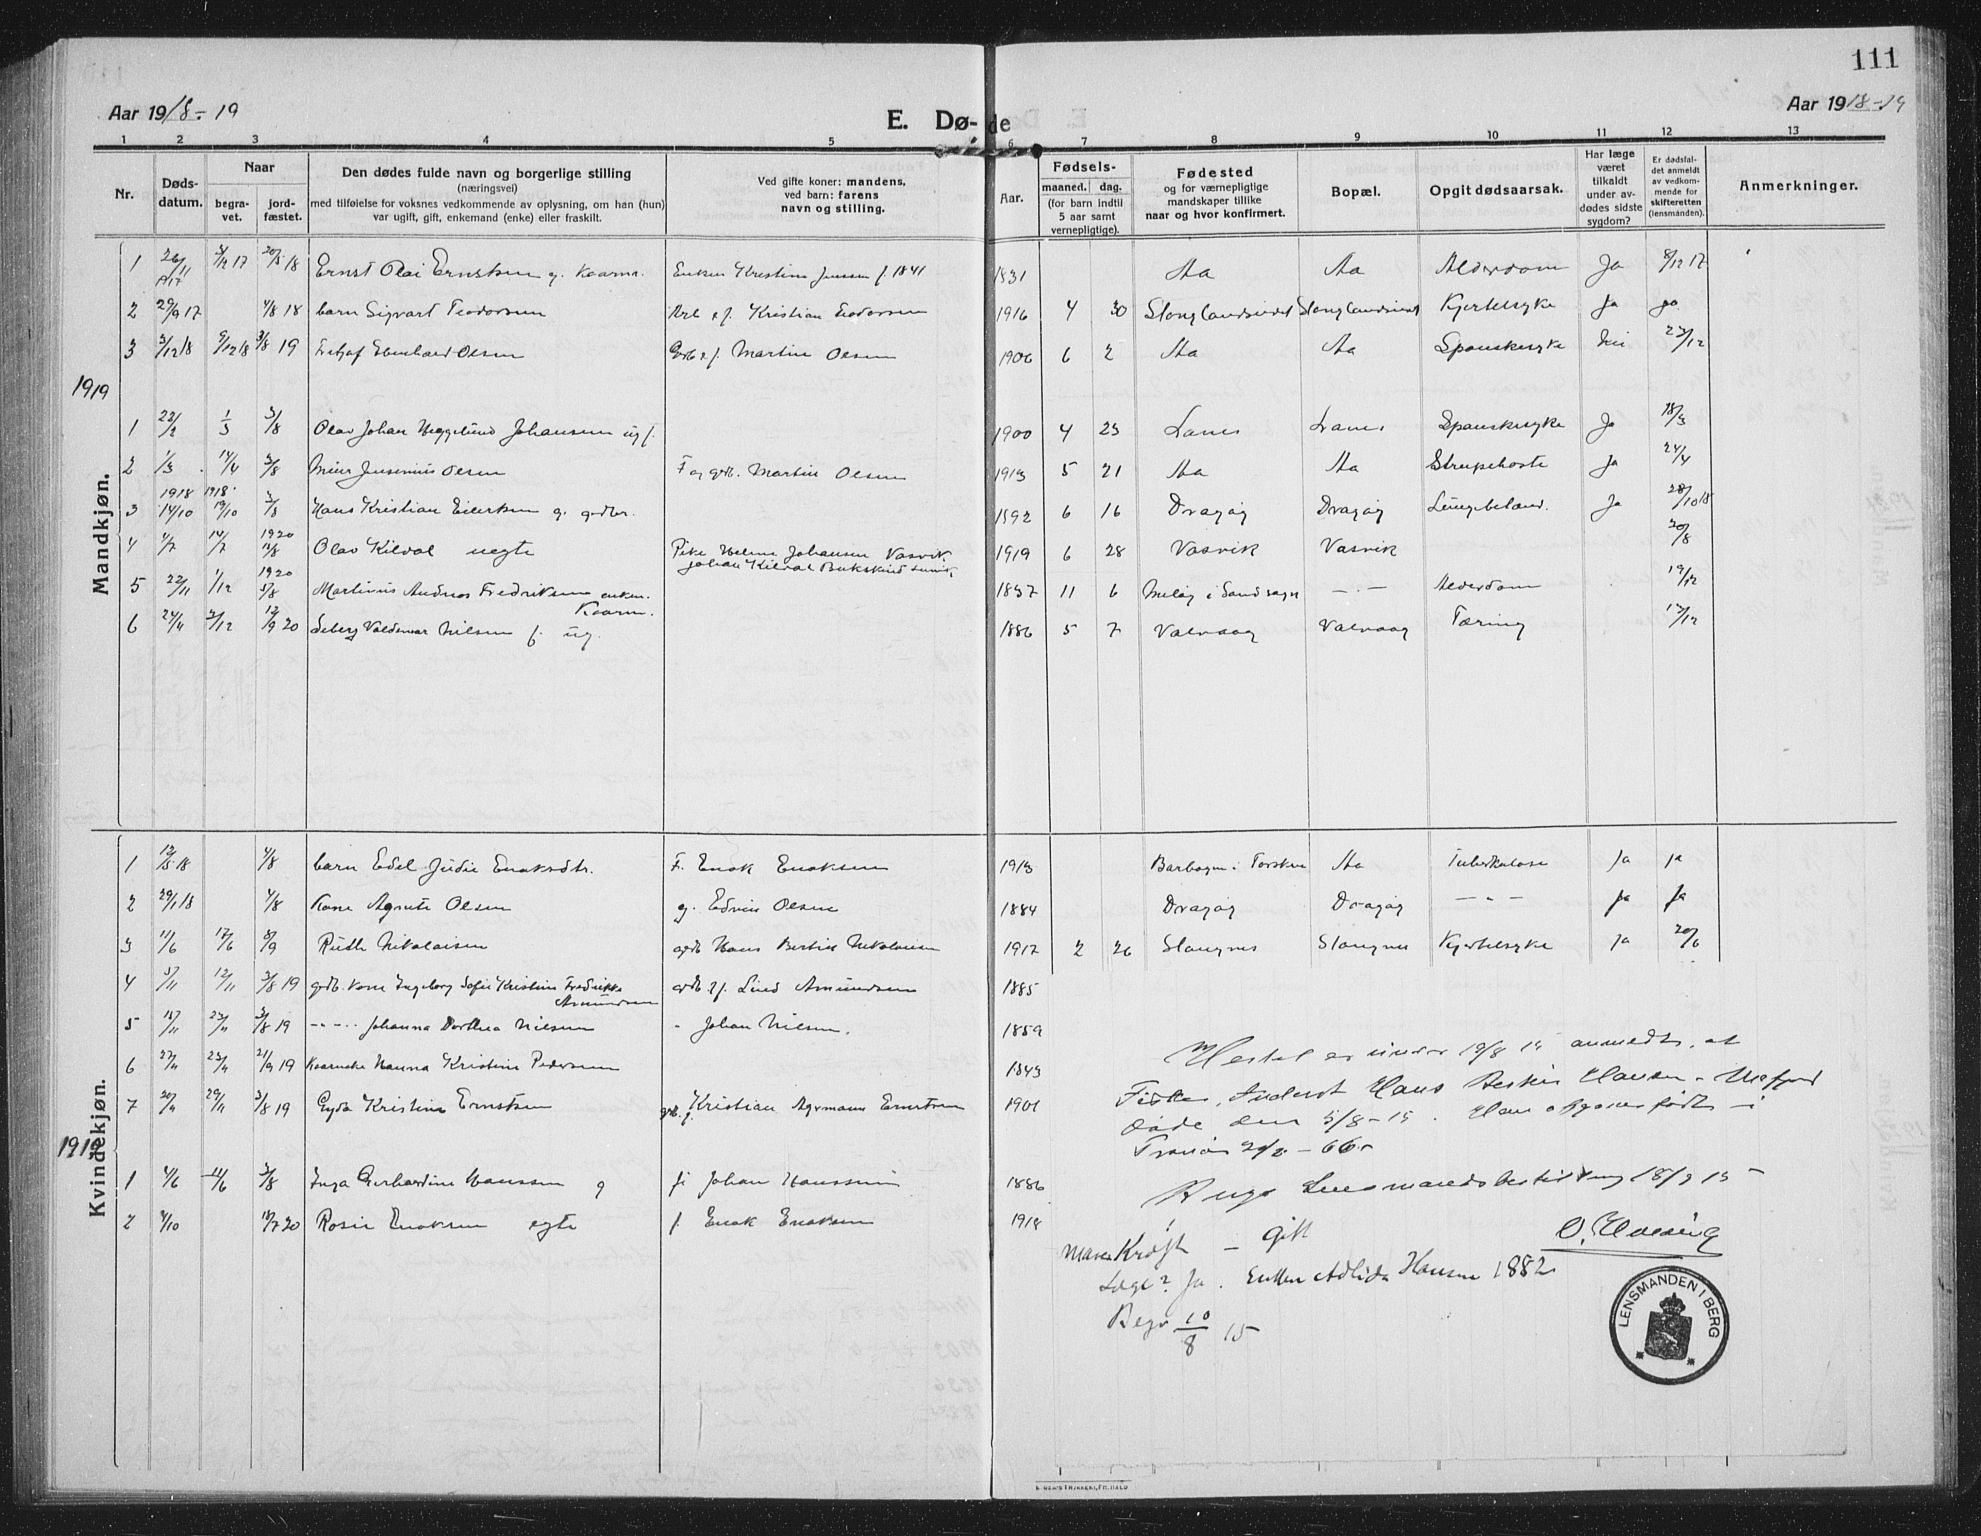 111
Aar 1918-19
E. Dø-de
Aar 1918-19
1 2 3 4 5 6 7 8 9 10 11 12 13
Nr.
Døds-
datum.
Naar
begra-
vet.
jord-
fæstet.
Den dødes fulde navn og borgerlige stilling
(næringsvei)
med tilføielse for voksnes vedkommende av oplysning, om han (hun)
var ugift, gift, enkemand (enke) eller fraskilt.
Ved gifte koner: mandens,
ved barn: farens
navn og stilling.
Aar.
Fødsels-
maaned. dag.
(for barn indtil
5 aar samt
vernepligtige).
Fødested
og for værnepligtige
mandskaper tillike
naar og hvor konfirmert.
Bopæl.
Opgit dødsaarsak.
Har læge
været
tilkaldt
under av-
dødes sidste
sygdom?
Er dødsfal-
det anmeldt
av vedkom-
mende for
skifteretten
(lensmanden).
Anmerkninger.
Mandkjøn.
1 26/11 1917 4/12 17 20/5 18 Ernst Olai Ernstsen g. Kaarm. Enken Kristine Jensen f. 1841 1831 Aa Aa Alderdom Ja 8/12 17
2 29/9 17 4/8 18 barn Sigvart Teodorsen f. Kristian Teodorsen 1916 4 30 Stonglandseidet Stonglandseidet Kjertelsyke Ja Ja
3 3/12 18 9/12 18 3/8 19 Eberhard Olsen f. Martin Olsen 1906 6 2 Aa Aa Spanskesyke Nei 23/12
1919
1 22/2 1/3 3/8 Olav Johan Heggelund Johansen ug f. 1900 4 23 Lanes Lanes Spanskesyke Ja 18/3
2 1/3 14/4 3/8 Jensenius Olsen F og grdb. Martin Olsen 1913 5 21 Aa Aa Strupehoste Ja 24/4
3 1918 14/10 1918 19/10 3/8 Hans Kristian Eilertsen g. grdbr. 1892 6 16 Dragøy Dragøy Lungebetænd. Ja 28/10 18
4 4/7 14/7 1920 Olav Kilval uegte Pike Helene Johansen Vasvik,
Johan Kilval 1919 6 28 Vasvik Vasvik 30/8
5 22/11 1/12 1920 5/8 Martinus Andreas Fredriksen enkem.
Kaarm. 1837 11 6 Meløy i Sandsogn -„- Alderdom 19/12
6 24/11 3/12 12/9 20 Seberg Valdemar Nilsen f. ug. 1886 5 7 Valvaag Valvaag Tæring 13/12
Kvindekjøn.
1 4/8 barn Edel Judie Enoksdtr. F. Enok Enoksen 1913 Torsken Aa Tuberkulose Ja Ja
2 29/1 18 4/8 Kone Agnete Olsen g. Edvin Olsen 1884 Dragøy Dragøy -„- Ja Ja
3 11/6 17/6 8/9 Ruth Nikolaisen grdb Hans Bertin Nikolaisen 1917 2 26 Stangnes Stangnes Kjertelsyke Ja 20/6
4 5/11 12/11 3/8 19 grdb. kone Ingeborg Sofie Kristine Fredrikke
Amundsen Amundsen 1885
5 15/11 23/11 3/8 19 Johanna Dorthea Nilsen Johan Nilsen. 1859
6 23/11 21/9 19 Hanna Kristine Pedersen 1843
7 20/11 29/11 3/8 19 Gyda Kristine Ernstsen Kristian Agrmann Ernstsen 1901
1919
1 4/6 11/6 3/8 Inga Gerhardine Hanssen g f. Johan Hanssen 1886
2 4/10 20 Rosie Enoksen egte f. Enok Enoksen 1918
Hertil er under 19/8 15 anmeldt, at
Fisker, Hans Hansen - Mefjord
døde den 5/8-15. Han opgives født i
Tranøy
Lensmandsbestilling 18/9 15
Kræft - Gift
Læge? Ja. Enken Adlida Hansen 1882
Begr 10/8 15
LENSMANDEN I BERG